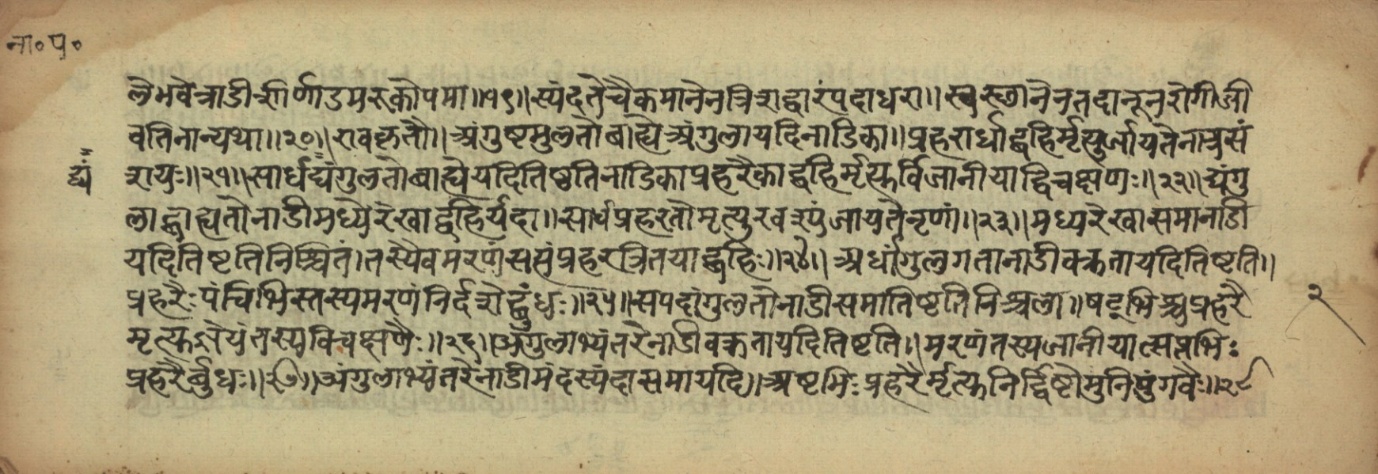 ना॰ प॰
लेभवेन्नाडीक्षीर्णाडमरुकोपमा॥१९॥स्यंदतेचैकमानेनत्रिंशद्वारंपदाधरा॥स्वस्थानेनतदानूनंरोगीजी
वतिनान्यथा॥२०॥रावकृतौ॥अंगुष्टमुलतोबाह्येअंगुलायदिनाडिका॥प्रहरार्धाद्बहिर्मृत्युर्जायतेनात्रसं
द्व्यं
शयः॥२१॥सार्धद्व्यंगुलतोबाह्येयदितिष्ठतिनाडिकाप्रहरैकाद्बहिर्मृत्युर्विजानीयाद्विचक्षणः॥२२॥द्व्यंगु
लाद्बाह्यतोनाडीमध्येरेखाद्बहिर्यदा॥सार्धप्रहरतोमृत्युरवश्यंजायतेनृणां॥२३॥मध्यरेखासमानाडी
यदितिष्टतिनिश्चितं।तस्यैवमरणंससंप्रहरत्रितयाद्बहिः॥२४॥अर्धांगुलगतानाडीवक्रतायदितिष्टति॥
प्रहरैःपंचभिस्तस्यमरणंनिर्दशेद्बुधः॥२५॥सपदांगुलतोनाडीसमातिष्टतिनिश्चला॥षट्भिश्चप्रहरै
२
मृत्युज्ञेयंतस्यविचक्षणैः॥२६॥अंगुलाभ्यंतरेनाडीवक्रतायदितिष्टति॥मरणंतस्यजानीयात्सप्तभिः
प्रहरैर्बुधः॥२७॥अंगुलाभ्यंतरेनाडीमंदस्यंदासमायदि॥अष्टभिःप्रहरैर्मृत्युनिर्द्दिष्टोमुनिपुंगवैः॥२८